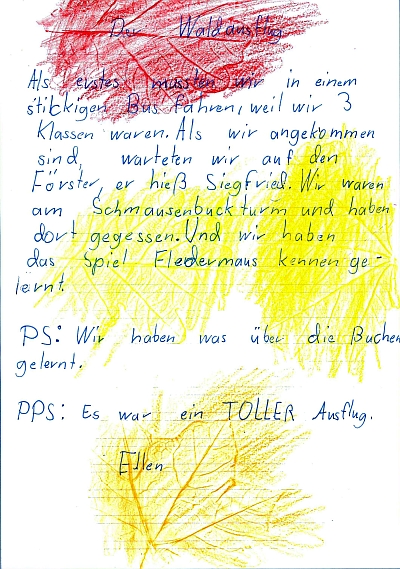 Der Waldausflug
Als erstes mussten wir in einem
stickigen Bus fahren, weil wir 3
Klassen waren. Als wir angekommen
sind, warteten wir auf den
Förster, er hieß Siegfried. Wir waren
am Schmausenbuckturm und haben
dort gegessen. Und wir haben
das Spiel Fledermaus kennen ge-
lernt.
PS: Wir haben was über die Buchen
gelernt.
PPS: Es war ein TOLLER Ausflug.
Ellen